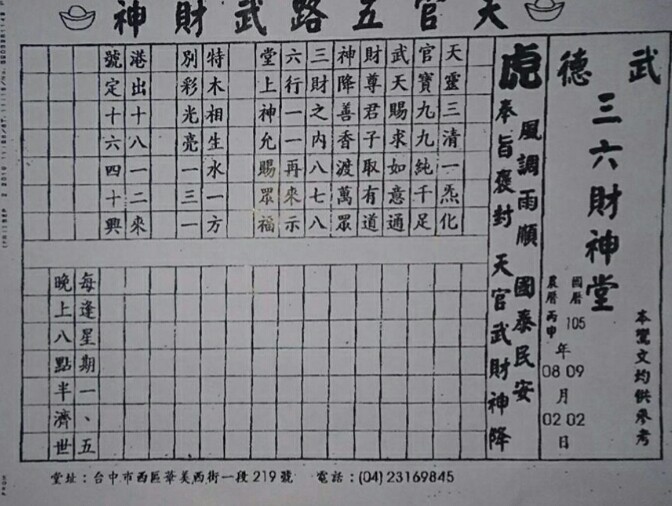 天官五路武財神
武德
三六財神堂
本鸞文均供參考
國曆 105 年 09 月 02 日
農曆 丙申 08 02
虎
風調雨順 國泰民安
奉旨褒封 天官武財神降
天靈三清一炁化
官寶九九純千足
武天賜求如意通
財尊君子取有道
神降善香渡萬眾
三財之內八七八
六行一一再來示
堂上神允賜眾福
特木相生水一方
別彩光亮一三一
港出十八一二來
號定十六四十興
每逢星期一、五
晚上八點半濟世
堂址：台中市西區華美西街一段219號 電話：(04)23169845